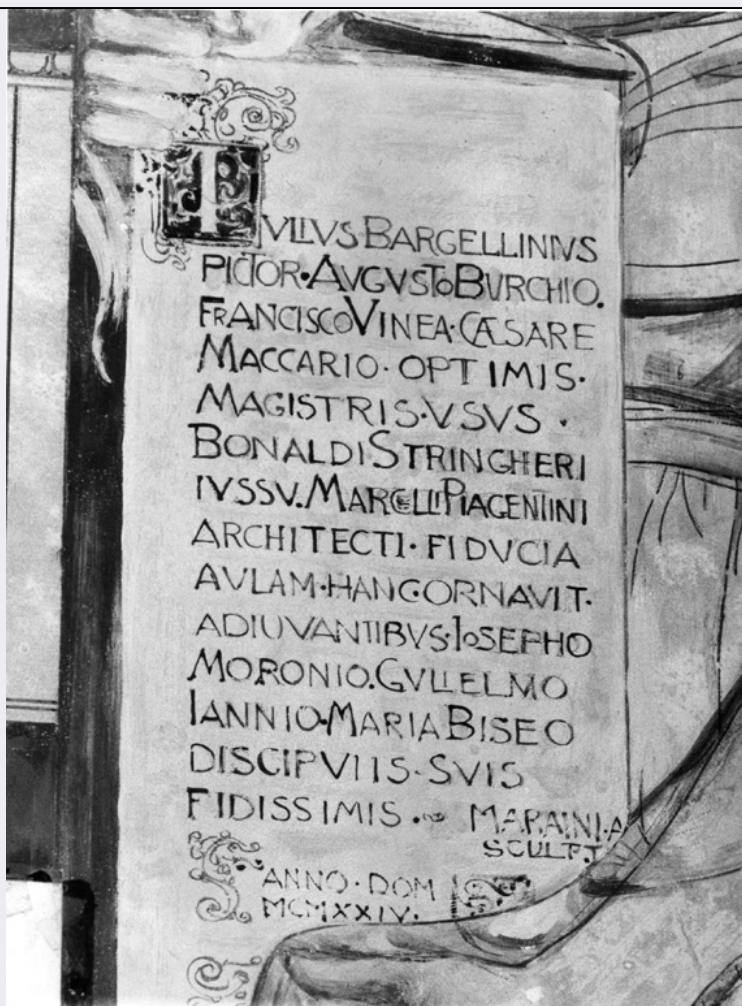 IVLIVS·BARGELLINIVS
PICTOR·AVGVSTO BVRCHIO.
FRANCISCO VINEA·CÆSARE
MACCARIO·OPTIMIS·
MAGISTRIS·VSVS·
BONALDI STRINGHERI
IVSSV·MARCELLI PIACENTINI
ARCHITECTI·FIDVCIA
AVLAM·HANC·ORNAVIT·
ADIUVANTIBVS·IOSEPHO
MORONIO·GVLIELMO
IANNIO·MARIA BISEO
DISCIPVLIS·SVIS
FIDISSIMIS·
MARAINI·A
SCULPT
ANNO·DOM
MCMXXIV.